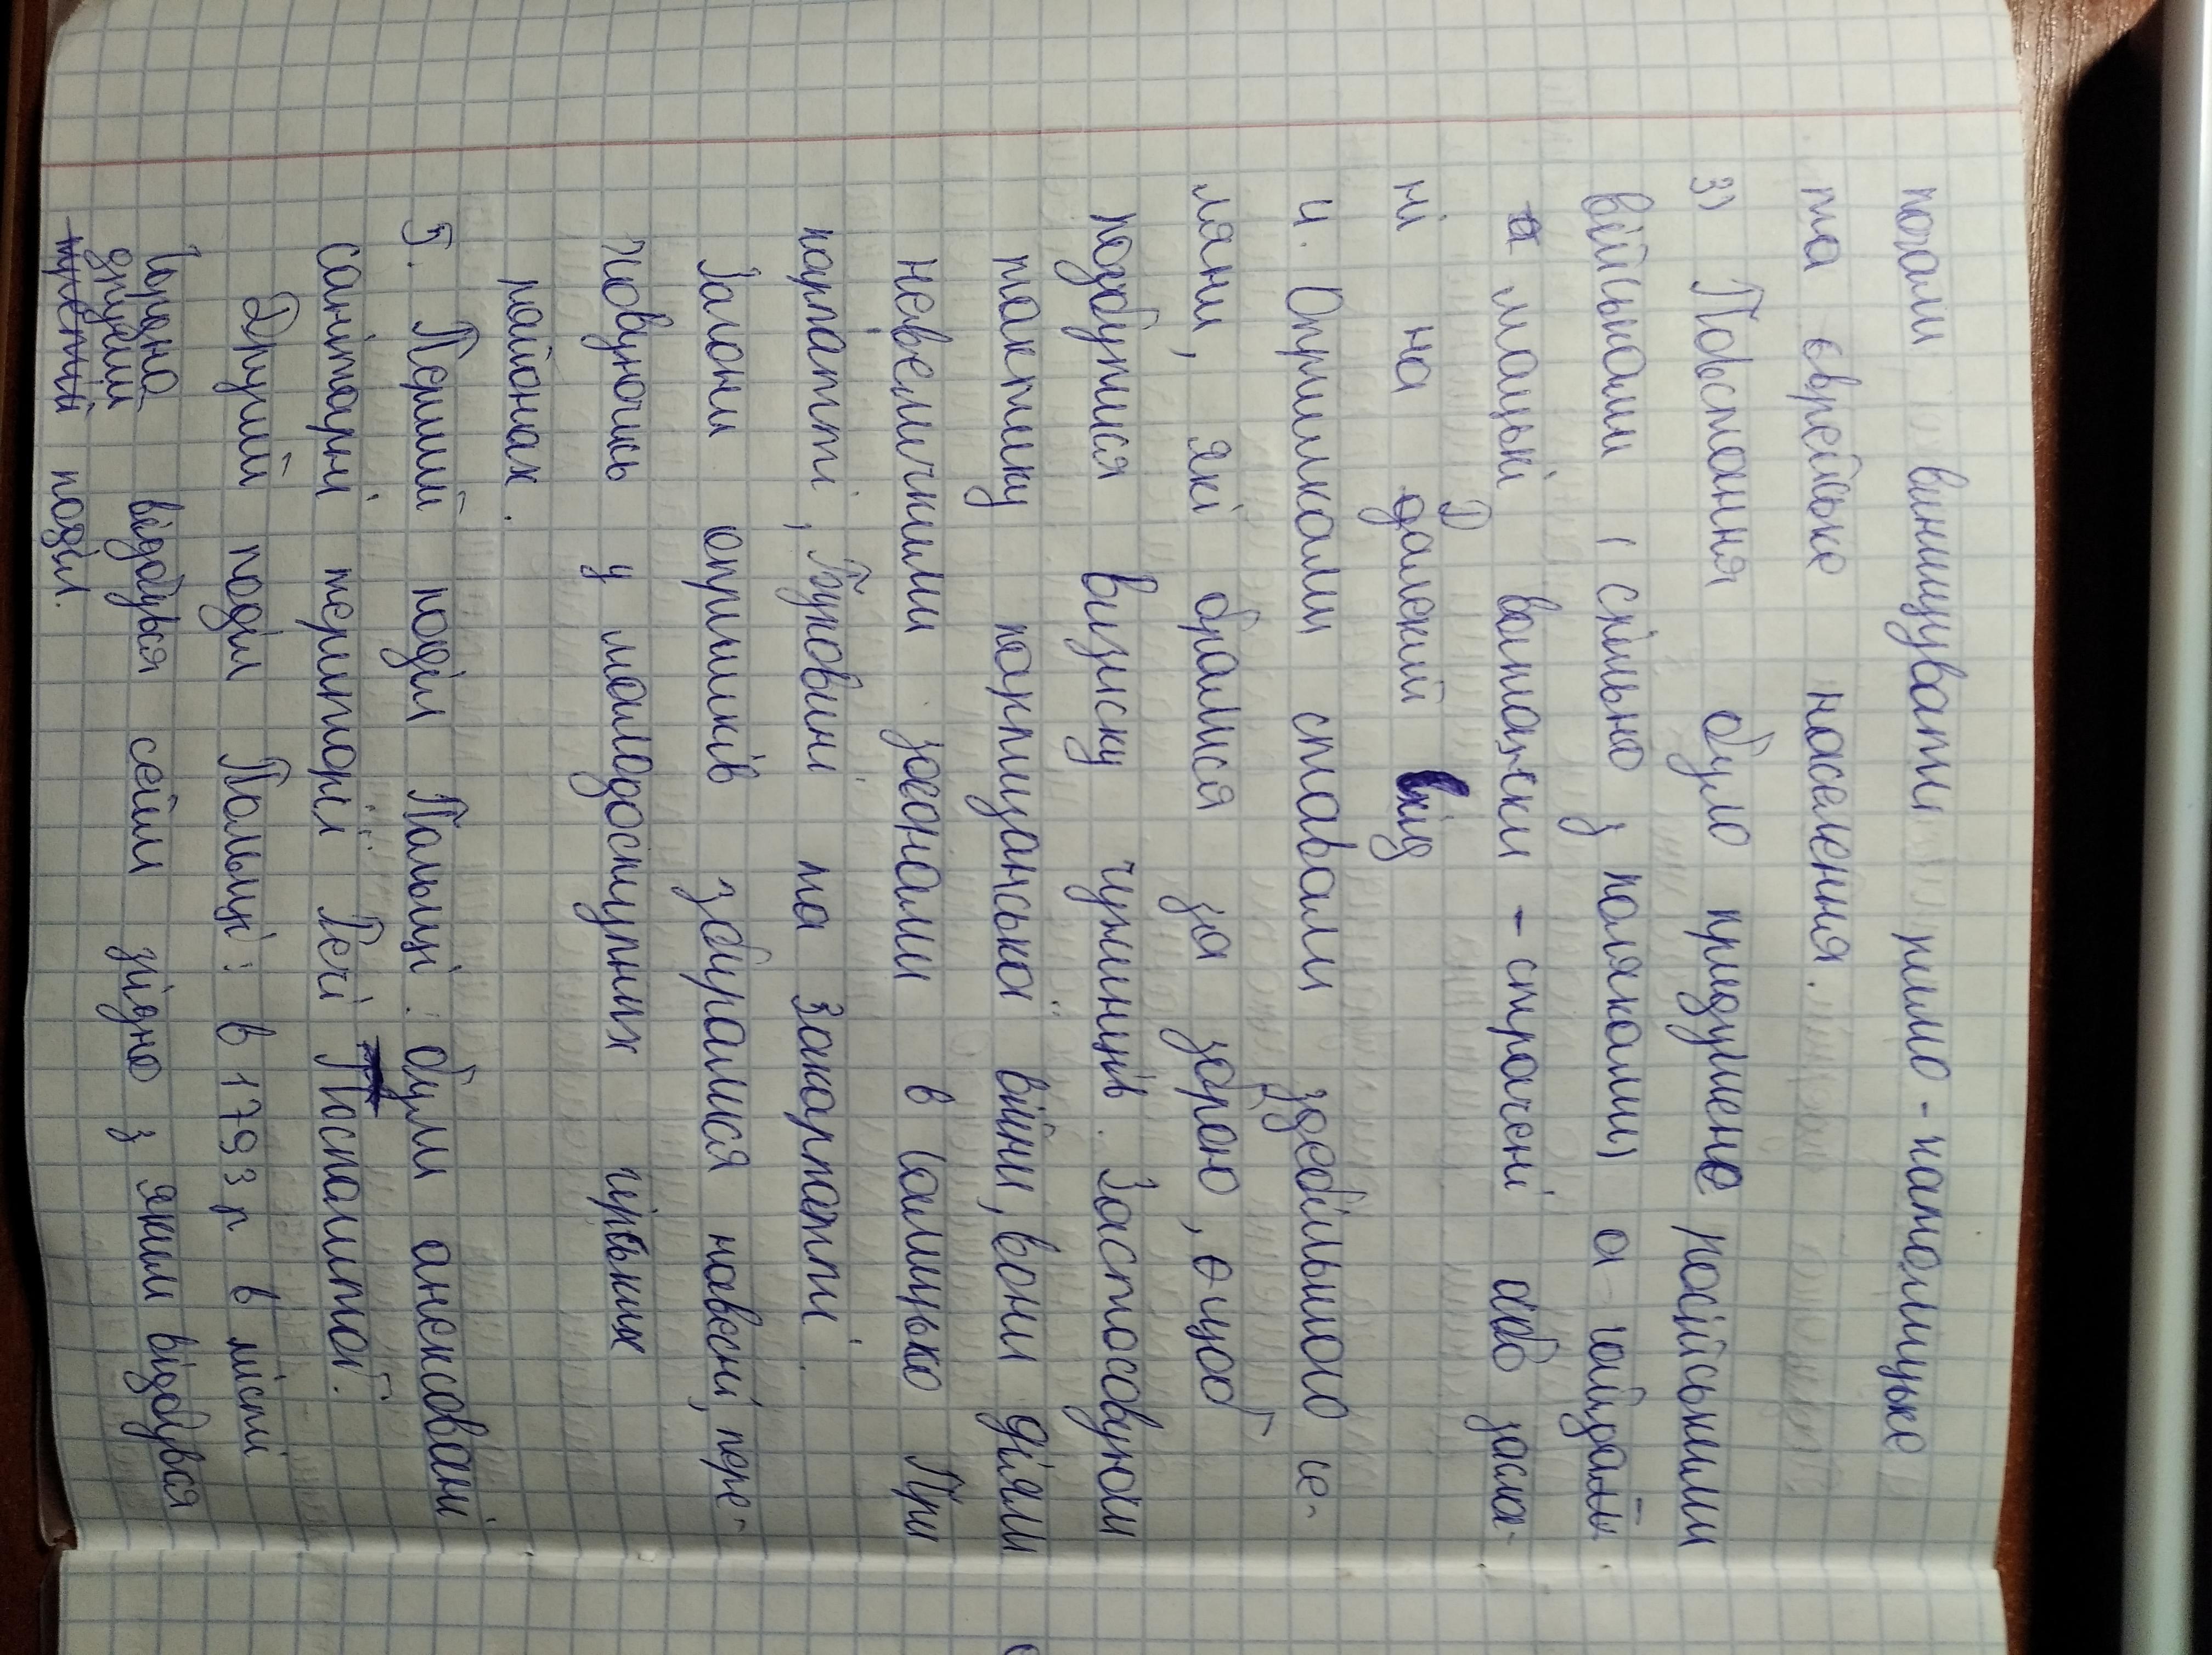 козали винищувати римо-католицьке
та єврейське населення.
3) Повстання було придушене російськими
військами (спільно з поляками) а гайдама
мацькі ватажки - страчені або засла-
ні на Далекий схід
4. Опришками ставали здебільшого се-
ляни, які бралися за зброю, щоб
позбутися визиску чужинців. Застосовуючи
тактику партизанської війни, вони діяли
невеличкими загонами в Галицько При
карпатті, Буковині та Закарпатті.
Загони опришків збиралися навесні, пере-
ховуючись у малодоступних гірських
районах.
5. Перший поділ Польщі: були анексовані
санітарні території Речі Посполитої.
Другий поділ Польщі: в 1793 р в місті
Гродно відбувся сейм згідно з яким відбувся
другий
третій поділ.